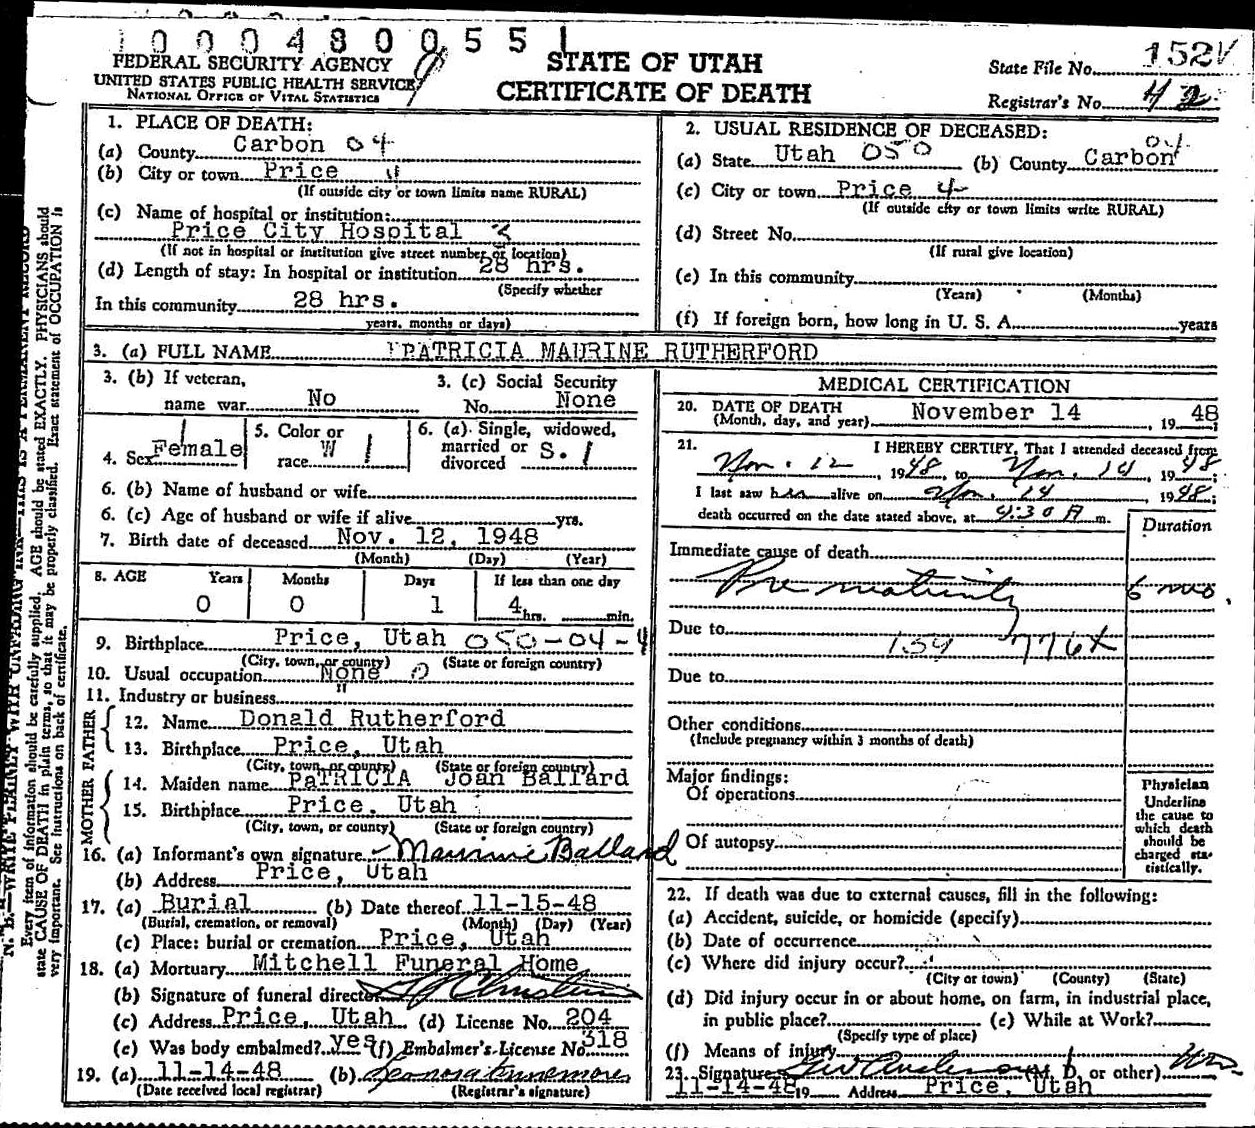 1000480055 1
FEDERAL SECURITY AGENCY
UNITED STATES PUBLIC HEALTH SERVICE
NATIONAL OFFICE OF VITAL STATISTICS
STATE OF UTAH
CERTIFICATE OF DEATH
State File No. 152V
Registrar's No. 42
N. B.—WRITE PLAINLY WITH UNFADING INK—THIS IS A PERMANENT RECORD
Every item of information should be carefully supplied. AGE should be stated EXACTLY. PHYSICIANS should
state CAUSE OF DEATH in plain terms, so that it may be properly classified. Exact statement of OCCUPATION is
very important. See instructions on back of certificate.
1. PLACE OF DEATH:
(a) County Carbon 04
(b) City or town Price
(If outside city or town limits name RURAL)
(c) Name of hospital or institution:
Price City Hospital
(If not in hospital or institution give street number or location)
(d) Length of stay: In hospital or institution 28 hrs.
(Specify whether
In this community 28 hrs.
years, months or days)
2. USUAL RESIDENCE OF DECEASED:
(a) State Utah 050 (b) County Carbon 04
(c) City or town Price 4
(If outside city or town limits write RURAL)
(d) Street No.
(If rural give location)
(e) In this community
(Years) (Months)
(f) If foreign born, how long in U. S. A. years
3. (a) FULL NAME PATRICIA MAURINE RUTHERFORD
3. (b) If veteran,
name war No
3. (c) Social Security
No. None
4. Sex Female 1
5. Color or
race W 1
6. (a) Single, widowed,
married or
divorced S. 1
6. (b) Name of husband or wife
6. (c) Age of husband or wife if alive yrs.
7. Birth date of deceased Nov. 12, 1948
(Month) (Day) (Year)
8. AGE Years Months Days If less than one day
0 0 1 4 hrs. min.
9. Birthplace Price, Utah 050-04-4
(City, town, or county) (State or foreign country)
10. Usual occupation None 0
11. Industry or business "
FATHER
12. Name Donald Rutherford
13. Birthplace Price, Utah
(City, town, or county) (State or foreign country)
MOTHER
14. Maiden name PaTRICIA Joan Ballard
15. Birthplace Price, Utah
(City, town, or county) (State or foreign country)
16. (a) Informant's own signature Maurine Ballard
(b) Address Price, Utah
17. (a) Burial (b) Date thereof 11-15-48
(Burial, cremation, or removal) (Month) (Day) (Year)
(c) Place: burial or cremation Price, Utah
18. (a) Mortuary Mitchell Funeral Home
(b) Signature of funeral director
(c) Address Price, Utah (d) License No. 204
(e) Was body embalmed? yes (f) Embalmer's License No. 318
19. (a) 11-14-48 (b)
(Date received local registrar) (Registrar's signature)
MEDICAL CERTIFICATION
20. DATE OF DEATH November 14, 1948;
(Month, day, and year)
21. I HEREBY CERTIFY, That I attended deceased from
Nov. 12, 1948, to Nov. 14, 1948;
I last saw her alive on Nov. 14 1948;
death occurred on the date stated above, at 4:30 A m.
Duration
Immediate cause of death
Prematurity 6 mo.
Due to 159 776X
Due to
Other conditions
(Include pregnancy within 3 months of death)
Major findings:
Of operations
Of autopsy
Physician
Underline
the cause to
which death
should be
charged sta-
tistically.
22. If death was due to external causes, fill in the following:
(a) Accident, suicide, or homicide (specify)
(b) Date of occurrence
(c) Where did injury occur?
(City or town) (County) (State)
(d) Did injury occur in or about home, on farm, in industrial place,
in public place? (e) While at Work?
(Specify type of place)
(f) Means of injury
23. Signature (M. D. or other)
11-14-48 19 Address Price, Utah